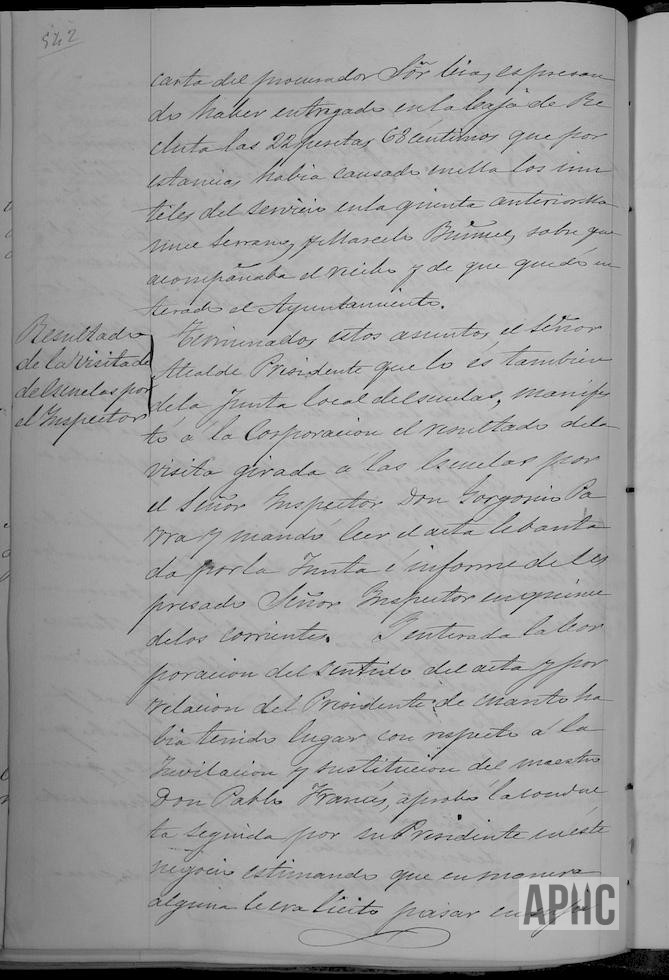 542
carta del procurador Sõr espresan
do haber entregado en la Caja de Re
cluta las 22 pesetas 68 centimos que por
estancias habia causado en ella los inu
tiles del servicio en la quinta anterior Ma
Serrano, y Marcelo sobre que
acompañaba el recibo y de que quedó en
terado el Ayuntamiento.
Resultado
de la visita de
de escuelas por
el Inspector
Terminados estos asuntos, el Señor
Alcalde Presidente que lo és tambien
de la Junta local de escuelas, manifes
tó á la Corporacion el resultado de la
visita girada á las Escuelas por
el Señor Inspector Don Gorgonio Pa
rra y mandó leer el acta lebanta
da por la Junta é informe del es
presado Señor Inspector en quince
de los corrientes. Y enterada la Cor
poracion del sentido del acta y por
relacion del Presidente de cuanto ha
bia tenido lugar con respecto á la
y sustitucion del maestro
Don Pablo Francés, aprobó la conduc
ta seguida por su Presidente en este
negocio estimando que en manera
alguna le era licito pasar
APHC